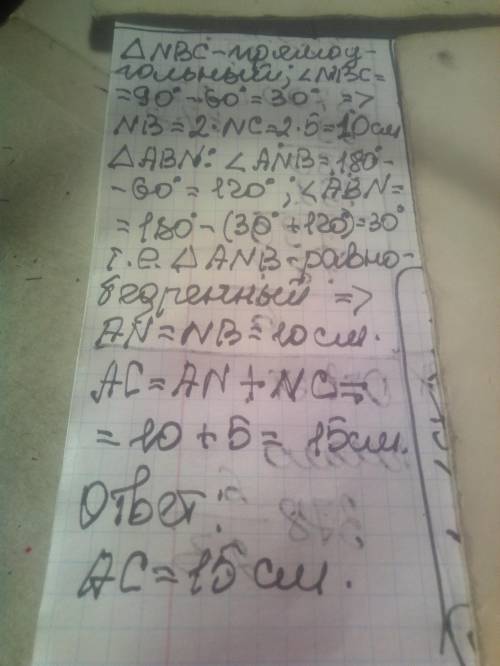 △NBC-прямоу-
гольный; ∠NBC=
=90°-60°=30° =>
NB=2·NC=2·5=10см
△ABN: ∠ANB=180°-
-60°=120°; ∠ABN=
=180°-(30°+120°)=30°
т.е. △ANB-равно-
бедренный =>
AN=NB=10см.
AC=AN+NC=
=10+5=15см.
Ответ:
AC=15см.